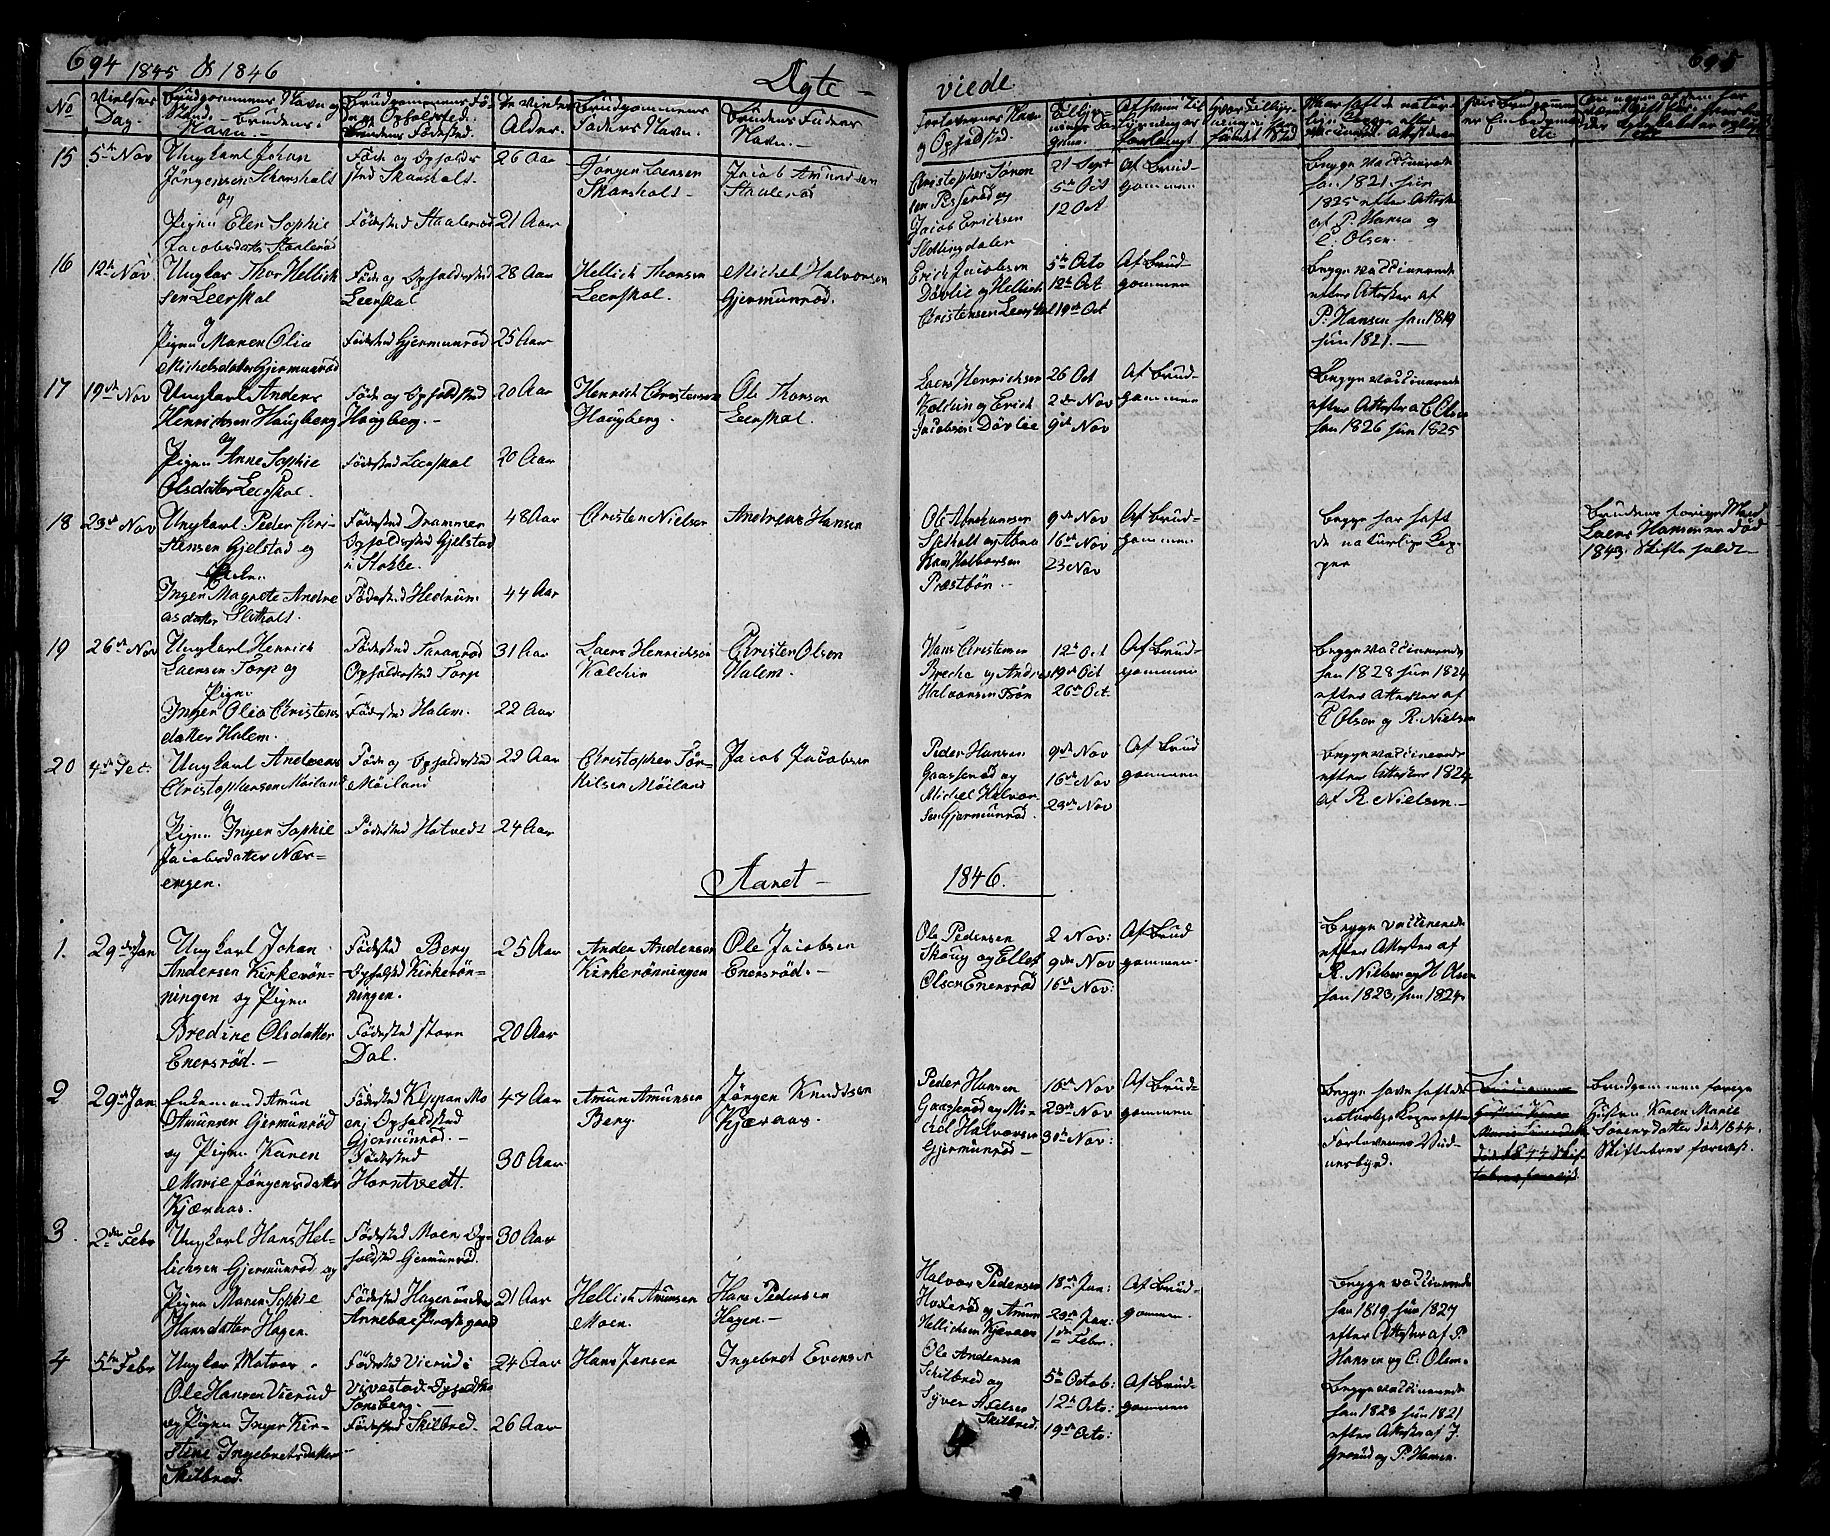 694 1845 & 1846
Ægte-
viede
695
No
Vielses Dag.
Brudgommens Navn og Stand. Brudens Navn.
Brudgommens Fødested og Opholdsted. Brudens Fødested.
De viedes Alder.
Brudgommens Faders Navn.
Brudens Faders Navn.
Forlovernes Navn og Opholdsted
15
5te Nov
Ungkarl Johan
Jörgensen Skarsholt
og
Pigen Elen Sophie
Jacobsdatter Staalerød
Føde og Opholds
sted Skarsholt.
Fødested Staalerød
26 Aar
21 Aar
Jörgen Larsen
Skarsholt
Jacob Amundsen
Staalerød
Christopher Sören
sen Pesserød og
Jacob Ericksen
Slottingdalen
21 Sept
5te Oct
12 Oct
Af Brud-
gommen
Begge vaccinerede
han 1821 hun
1825 efter Attester
af P. Hansen og
C. Olsen.
16
12te Nov
Ungkar Thor Hellich
sen Leerskal
og
Pigen Maren Olia
Michelsdatter Gjermunrød
Føde og Opholdssted
Leerskal
Fødested Gjermunrød
28 Aar
25 Aar
Hellich Thorsen
Leerskal.
Michel Halvorsen
Gjermunrød.
Erich Jacobsen
Dövlie og Hellich
Christensen Leerskal
5te Octo
12te Oct
19de Oct
Af Brud-
gommen
Begge vaccinerede
efter Attester af
P. Hansen han 1819
hun 1821. —
17
19de Nov
Ungkarl Anders
Henrichsen Haugberg
og
Pigen Anne Sophie
Olsdatter Leerskal.
Føde og Opholdsted
Haugberg. -
Fødested Leerskal
20 Aar
20 Aar
Henrich Christensen
Haugberg.
Ole Thorsen
Leerskal.
Laers Henrichsen
Kolldin og Erich
Jacobsen Dövlie
26 Oct
2den Nov
9de Nov
Af Brud-
gommen
Begge vaccinerede
efter Attester a C Olsen
han 1826 hun 1825
18
23de Nov
Ungkarl Peder Chri-
stensen Gjelstad og
Enken
Inger Magrete Andre
asdatter Slitholt.
Fødested Drammen
Opholdsted Gjelstad
i Stokke.
Fødested Hedrum
48 Aar
44 Aar
Christen Nielsen
Andreas Hansen
Ole Abrahamsen
Slitholt og
Hans Halvorsen
Præstbön. -
9de Nov
16de Nov
23 Nov
Af Brud-
gommen
Begge har haft
de naturlige Kop-
per
Brudens forrige Mand
Laers Hansen er Død
1843 Skifte holdt -
19
26de Nov
Ungkarl Henrich
Laersen Torp og
Pigen
Inger Olia Christens
datter Holem.
Fødested Taranrød
Opholdsted Torp
Fødested Holem.
31 Aar
22 Aar
Laers Henrichsen
Koldin
Christen Olsen
Holem.
Hans Christensen
Brecke og Andres
Halvorsen Trön
12te Oct
19de Oct
26de Oct.
Af Brud-
gommen
Begge vaccinerede
han 1828 hun 1824
efter Attester af
C Olsen og R. Nielsen
20
4de Dec:
Ungkarl Andreas
Christophersen Möiland
og
Pigen Inger Sophie
Jacobsdatter Nær-
engen.
Føde og Opholdsted
Möiland
Fødested Hotvedt
22 Aar
24 Aar
Christopher Tör-
kilsen Möiland
Jacob Jacobsen
Peder Hansen
Gaasserød og
Michel Halvor
sen Gjermunrød.
9de Nov
16de Nov
23de Nov
Af Brud
gommen
Begge vaccinerede
efter Attester 1824
af R. Nielsen. -
Aaret -
1846.
1.
29de Jan
Ungkarl Johan
Andersen Kirkerön-
ningen og Pigen
Bredine Olsdatter
Enersröd. -
Fødested Berg
Opholdsted Kirkerön-
ningen.
Fødested store
Dal.
25 Aar
20 Aar
Anders Andersen
Kirkerönningen
Ole Jacobsen
Enersröd. -
Ole Pedersen
Skoug og Ellef
Olsen Enersröd
2 Nov:
9de Nov
16de Nov:
Af Brud
gommen.
Begge vaccinerede
efter Attester af
R. Nielsen og H Olsen
han 1823, hun 1824
2
29de Jan
Enkemand Amun
Amunsen Gjermunröd
og Pigen Karen
Marie Jörgensdatter
Kjærnaas.
Fødested Kloppan Mo
en, Opholdsted
Gjermunröd. -
Fødested
Horntvedt.
47 Aar
30 Aar
Amun Amunsen
Berg.
Jörgen Knudsen
Kjærnaas.
Peder Hansen
Gaasserød og Mi-
chel Halvorsen
Gjermunröd -
16de Nov
23de Nov
30te Nov:
Af Brud-
gommen
Begge have haft de
naturlige Kopper efter
Forlovernes Vid-
nesbyrd.
Brudgommens forrige
Hustru Karen Marie
Sörensdatter död 1844.
Skiftebrev forevist.
3.
2den Febr
Ungkarl Hans Hel-
lichsen Gjermunröd og
Pigen Maren Sophie
Hansdatter Hagen.
Fødested Moen Op-
holdsted Gjermunröd.
Fødested Hagen under
Annebu Præstegaard
30 Aar
21 Aar
Hellich Amunsen
Moen.
Hans Pedersen
Hagen. -
Halvor Pedersen
Hoderød og Amun
Hellichsen Kjærnaas
18de Jan:
29de Jan:
1ste Febr.
Af Brud-
gommen.
Begge vaccinerede
han 1819 hun 1827
efter Attester af P.
Hansen og C. Olsen.
4
5te Febr
Ungkar Matros
Ole Hansen Vierud
og Pigen Inger Kir-
stine Ingebretsdatter
Skilbred.
Fødested Vierud i
Vivestad. Opholdsted
Tønsberg. -
Fødested Skilbred.
24 Aar
26 Aar
Hans Jensen
Ingebret Evensen
Ole Andersen
Schilbred og
Syver Axelsen
Skilbred.
5te Octob:
12te Octo:
19de Octo:
Af Brud-
gommen
Begge vaccinerede
han 1823 hun 1821
efter Attester af J.
Grorud og P. Hansen.